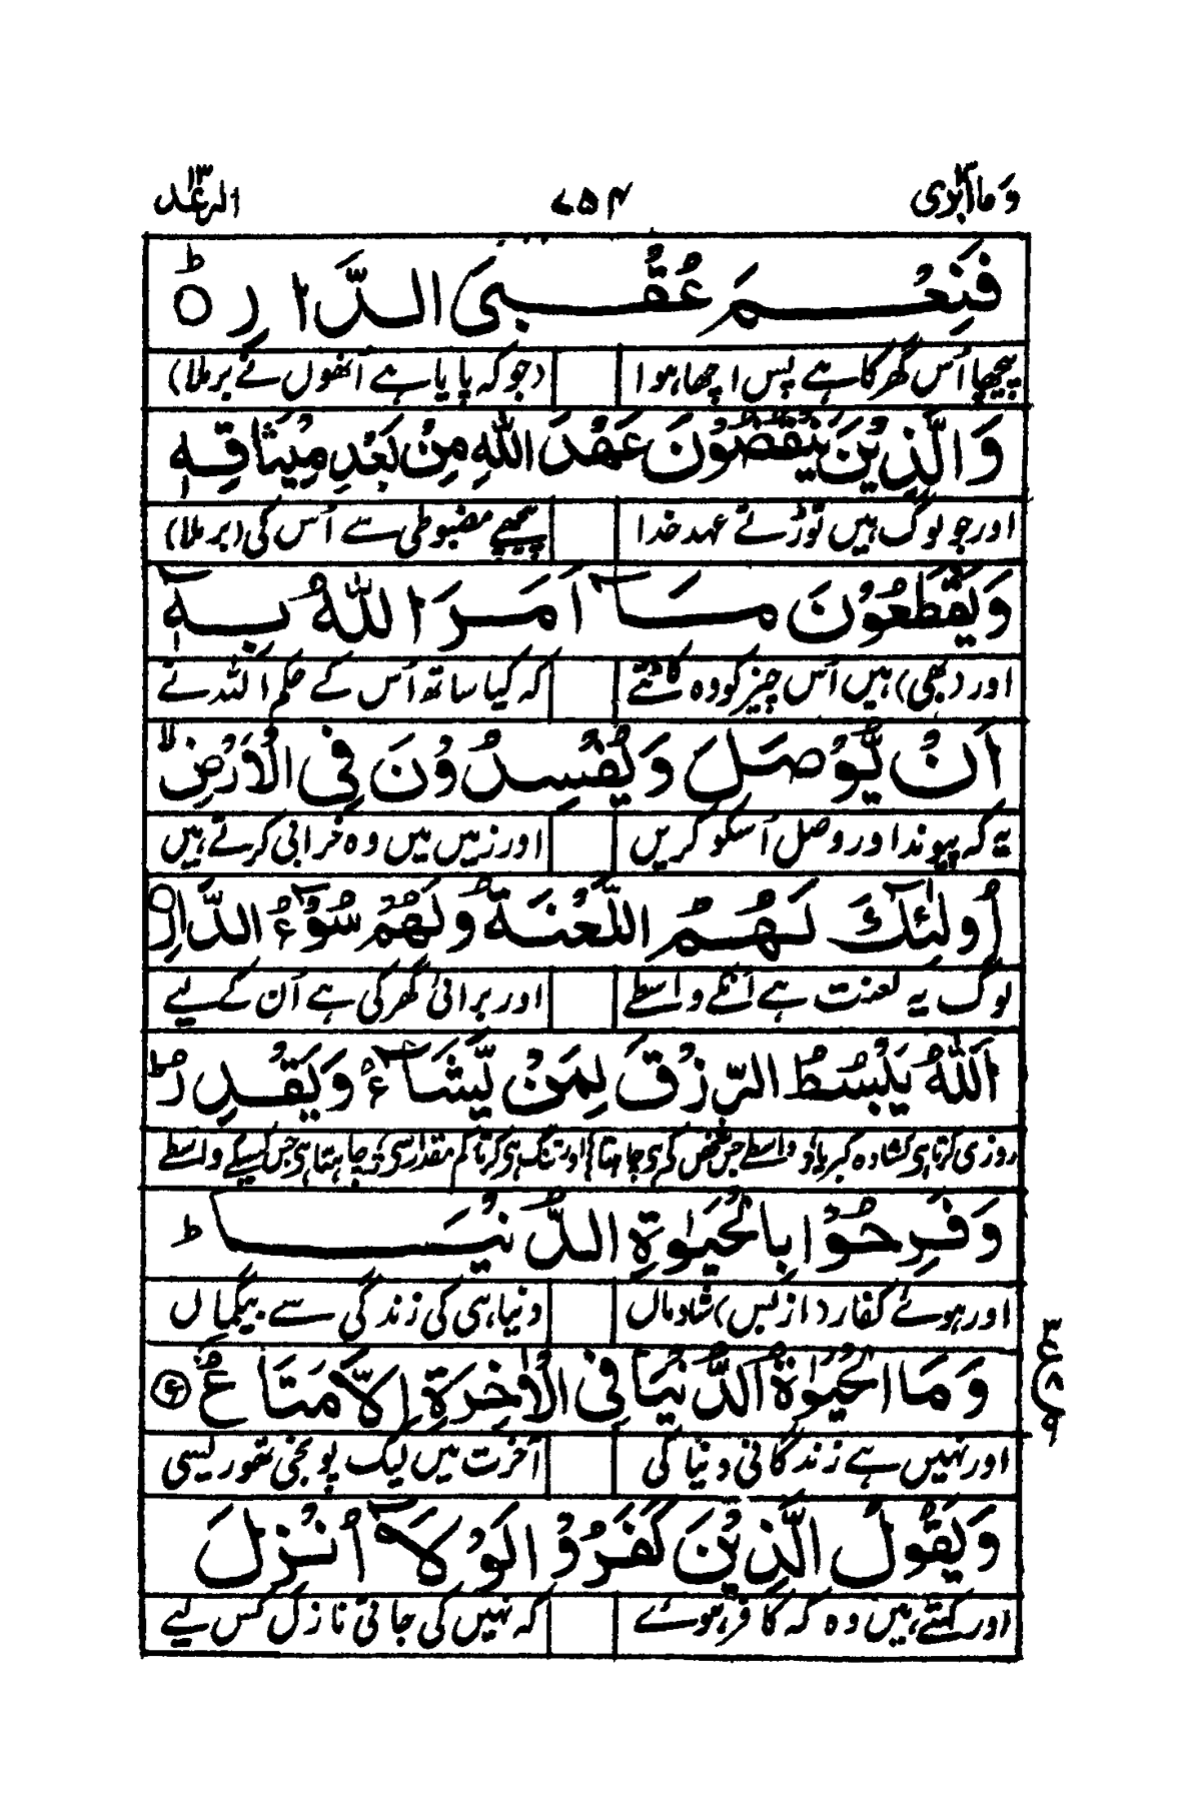 وما ابرئ ١٣ ٧٥٤ الرعد ١٣
فَنِعْمَ عُقْبَى الدَّارِ ○ ط
پیچھا اُس گھر کا ہے پس اچھا ہوا (جو کہ پایا ہے اُنھوں نے برملا)
وَالَّذِيْنَ يَنْقُضُوْنَ عَهْدَ اللّٰهِ مِنْۢ بَعْدِ مِيْثَاقِهٖ
اور جو لوگ ہیں توڑتے عہد خدا پیچھے مضبوطی سے اُس کی (برملا)
وَيَقْطَعُوْنَ مَآ اَمَرَ اللّٰهُ بِهٖٓ
اور (بھی) ہیں اُس چیز کو وہ کاٹتے کہ کیا ساتھ اُس کے حکم اللہ نے
اَنْ يُّوْصَلَ وَيُفْسِدُوْنَ فِى الْاَرْضِ ۙ
یہ کہ پیوند اور وصل اُسکو کریں اور زمیں میں وہ خرابی کرتے ہیں
اُولٰٓئِكَ لَهُمُ اللَّعْنَةُ وَلَهُمْ سُوْٓءُ الدَّارِ ○
لوگ یہ لعنت ہے اُنکے واسطے اور برائی گھر کی ہے اُن کے لیے
اَللّٰهُ يَبْسُطُ الرِّزْقَ لِمَنْ يَّشَآءُ وَيَقْدِرُ ؕ
روزی کرتا ہی کشادہ کبریا واسطے جس شخص کے ہی چاہتا اور تنگ ہی کرتا کم مقدار سی چاہتا ہی جس کسیکے واسطے
وَفَرِحُوْا بِالْحَيٰوةِ الدُّنْيَا ؕ
اور ہوئے کفار (از بس) شادماں دنیا ہی کی زندگی سے بیگماں
وَمَا الْحَيٰوةُ الدُّنْيَا فِى الْاٰخِرَةِ اِلَّا مَتَاعٌ
اور نہیں ہے زندگانی دنیا کی آخرت میں لیک پونجی تھوڑیسی
٣ ع ٨ ٩
وَيَقُوْلُ الَّذِيْنَ كَفَرُوْا لَوْلَآ اُنْزِلَ
اور کہتے ہیں وہ کہ کافر ہوئے کہ نہیں کی جاتی نازل کس لیے